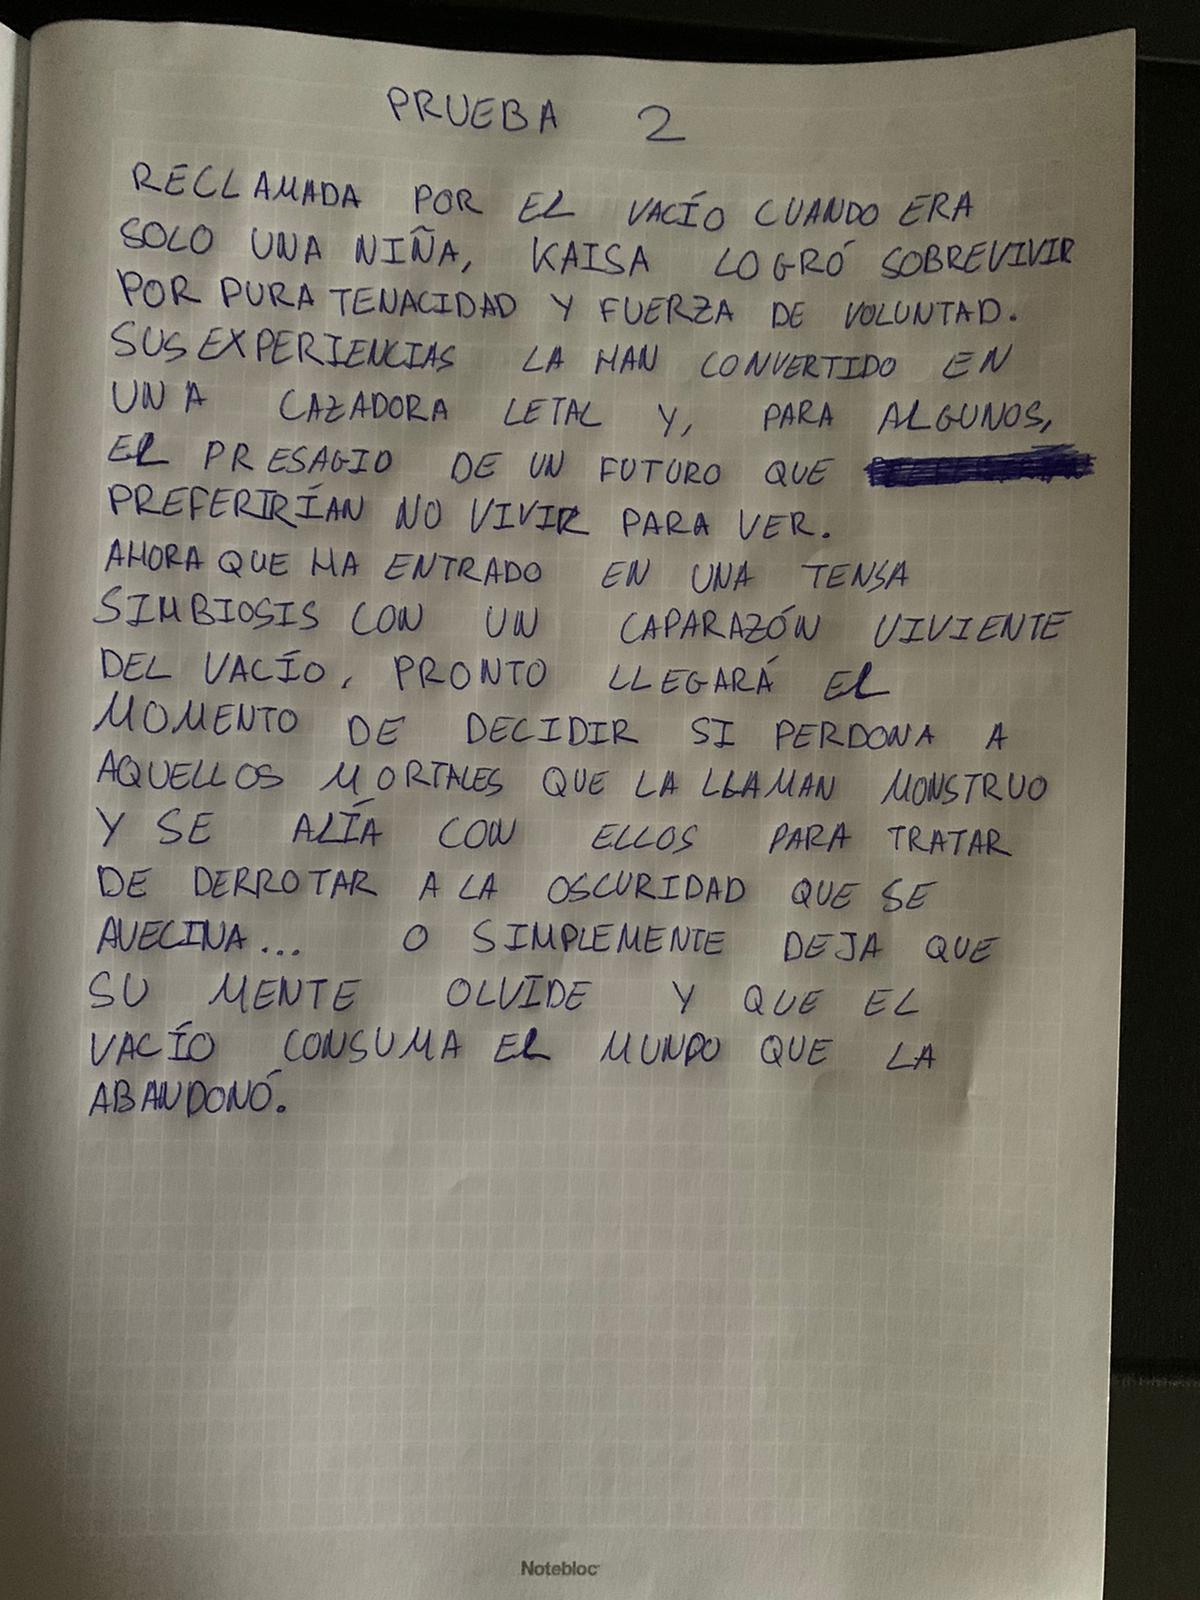 PRUEBA 2
RECLAMADA POR EL VACÍO CUANDO ERA
SOLO UNA NIÑA, KAISA LOGRÓ SOBREVIVIR
POR PURA TENACIDAD Y FUERZA DE VOLUNTAD.
SUS EXPERIENCIAS LA HAN CONVERTIDO EN
UNA CAZADORA LETAL Y, PARA ALGUNOS,
EL PRESAGIO DE UN FUTURO QUE
PREFERIRÍAN NO VIVIR PARA VER.
AHORA QUE HA ENTRADO EN UNA TENSA
SIMBIOSIS CON UN CAPARAZÓN VIVIENTE
DEL VACÍO, PRONTO LLEGARÁ EL
MOMENTO DE DECIDIR SI PERDONA A
AQUELLOS MORTALES QUE LA LLAMAN MONSTRUO
Y SE ALÍA CON ELLOS PARA TRATAR
DE DERROTAR A LA OSCURIDAD QUE SE
AVECINA... O SIMPLEMENTE DEJA QUE
SU MENTE OLVIDE Y QUE EL
VACÍO CONSUMA EL MUNDO QUE LA
ABANDONÓ.
Notebloc